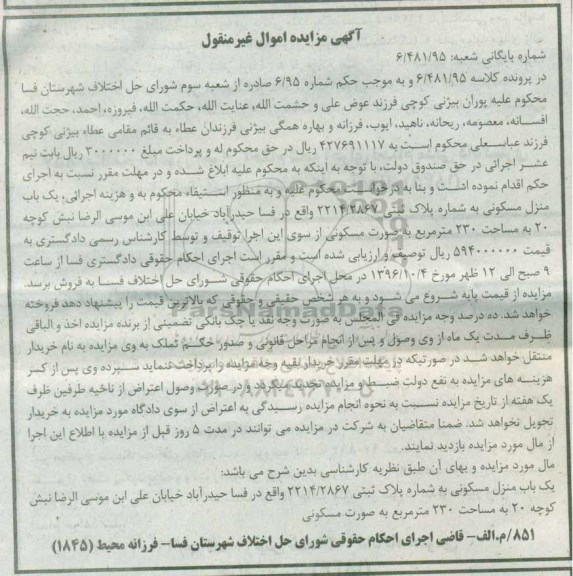 آگهی مزایده اموال غیرمنقول
شماره بایگانی شعبه: ۶/۴۸۱/۹۵
در پرونده کلاسه ۶/۴۸۱/۹۵ و به موجب حکم شماره ۶/۹۵ صادره از شعبه سوم شورای حل اختلاف شهرستان فسا
محکوم علیه پوران بیژنی کوچی فرزند عوض علی و حشمت الله، عنایت الله، حکمت الله، فیروزه، احمد، حجت الله،
افسانه، معصومه، ریحانه، ناهید، ایوب، فرزانه و بهاره همگی بیژنی فرزندان عطاء به قائم مقامی عطاء بیژنی کوچی
فرزند عباسعلی محکوم است به ۴۲۷۶۹۱۱۱۷ ریال در حق محکوم له و پرداخت مبلغ ۳۰۰۰۰۰۰ ریال بابت نیم
عشر اجرائی در حق صندوق دولت، با توجه به اینکه به محکوم علیه ابلاغ شده و در مهلت مقرر نسبت به اجرای
حکم اقدام ننموده است و بنا به درخواست محکوم علیه و به منظور استیفاء محکوم به و هزینه اجرائی، یک باب
منزل مسکونی به شماره پلاک ثبتی ۲۲۱۴/۲۸۶۷ واقع در فسا حیدرآباد خیابان علی ابن موسی الرضا نبش کوچه
۲۰ به مساحت ۲۳۰ مترمربع به صورت مسکونی از سوی این اجرا توقیف و توسط کارشناس رسمی دادگستری به
قیمت ۵۹۴۰۰۰۰۰۰ ریال توصیف و ارزیابی شده است و مقرر است اجرای احکام حقوقی دادگستری فسا از ساعت
۹ صبح الی ۱۲ ظهر مورخ ۱۳۹۶/۱۰/۴ در محل اجرای احکام حقوقی شورای حل اختلاف فسا به فروش برسد.
مزایده از قیمت پایه شروع می شود و به هر شخص حقیقی و حقوقی که بالاترین قیمت را پیشنهاد دهد فروخته
خواهد شد. ده درصد وجه مزایده فی المجلس به صورت وجه نقد یا چک بانکی تضمینی از برنده مزایده اخذ و الباقی
ظرف مدت یک ماه از وی وصول و پس از انجام مراحل قانونی و صدور حکم تملک به وی مزایده به نام خریدار
منتقل خواهد شد در صورتیکه در مهلت مقرر خریدار بقیه وجه مزایده را پرداخت ننماید سپرده وی پس از کسر
هزینه های مزایده به نفع دولت ضبط و مزایده تجدید میگردد و در صورت وصول اعتراض از ناحیه طرفین ظرف
یک هفته از تاریخ مزایده نسبت به نحوه انجام مزایده رسیدگی به اعتراض از سوی دادگاه مورد مزایده به خریدار
تحویل نخواهد شد. ضمنا متقاضیان به شرکت در مزایده می توانند در مدت ۵ روز قبل از مزایده با اطلاع این اجرا
از مال مورد مزایده بازدید نمایند.
مال مورد مزایده و بهای آن طبق نظریه کارشناسی بدین شرح می باشد:
یک باب منزل مسکونی به شماره پلاک ثبتی ۲۲۱۴/۲۸۶۷ واقع در فسا حیدرآباد خیابان علی ابن موسی الرضا نبش
کوچه ۲۰ به مساحت ۲۳۰ مترمربع به صورت مسکونی
۸۵۱/م.الف- قاضی اجرای احکام حقوقی شورای حل اختلاف شهرستان فسا- فرزانه محیط (۱۸۴۵)
ParsNamadData